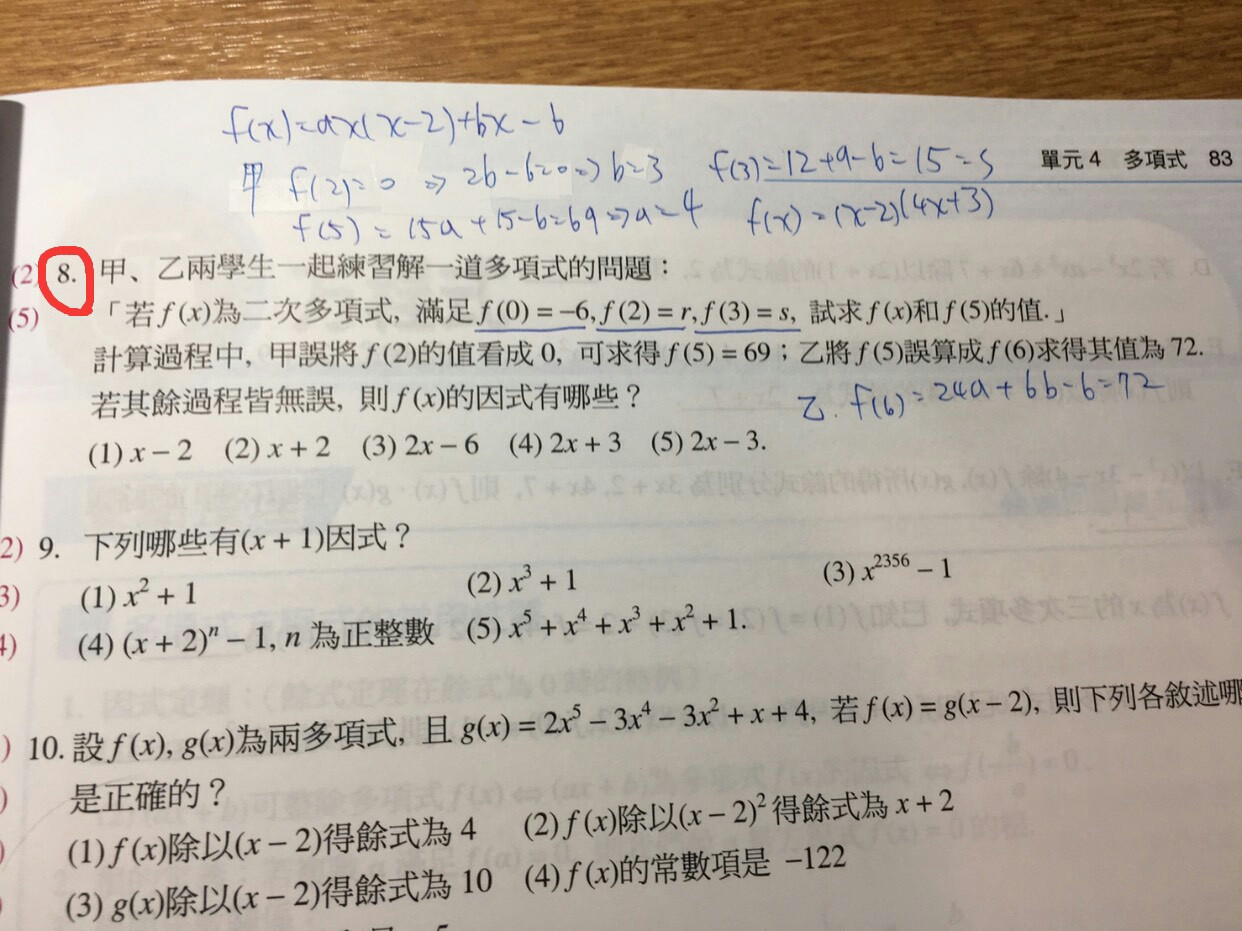 f(x)=ax(x-2)+bx-6
甲 f(2)=0 ⇒ 2b-6=0 ⇒ b=3 f(3)=12+9-6=15=s
單元 4 多項式 83
f(5)=15a+15-6=69 ⇒ a=4 f(x)=(x-2)(4x+3)
(2) 8. 甲、乙兩學生一起練習解一道多項式的問題：
(5) 「若 f(x)為二次多項式, 滿足 f(0) = −6, f(2) = r, f(3) = s, 試求 f(x)和 f(5)的值.」
計算過程中, 甲誤將 f(2)的值看成 0, 可求得 f(5) = 69；乙將 f(5)誤算成 f(6)求得其值為 72.
若其餘過程皆無誤, 則 f(x)的因式有哪些？
乙. f(6)=24a+6b-6=72
(1) x − 2 (2) x + 2 (3) 2x − 6 (4) 2x + 3 (5) 2x − 3.
2) 9. 下列哪些有(x + 1)因式？
3) (1) x² + 1 (2) x³ + 1 (3) x²³⁵⁶ − 1
4) (4) (x + 2)ⁿ − 1, n 為正整數 (5) x⁵ + x⁴ + x³ + x² + 1.
) 10. 設 f(x), g(x)為兩多項式, 且 g(x) = 2x⁵ − 3x⁴ − 3x² + x + 4, 若 f(x) = g(x − 2), 則下列各敘述哪
) 是正確的？
) (1) f(x)除以(x − 2)得餘式為 4 (2) f(x)除以(x − 2)² 得餘式為 x + 2
(3) g(x)除以(x − 2)得餘式為 10 (4) f(x)的常數項是 −122